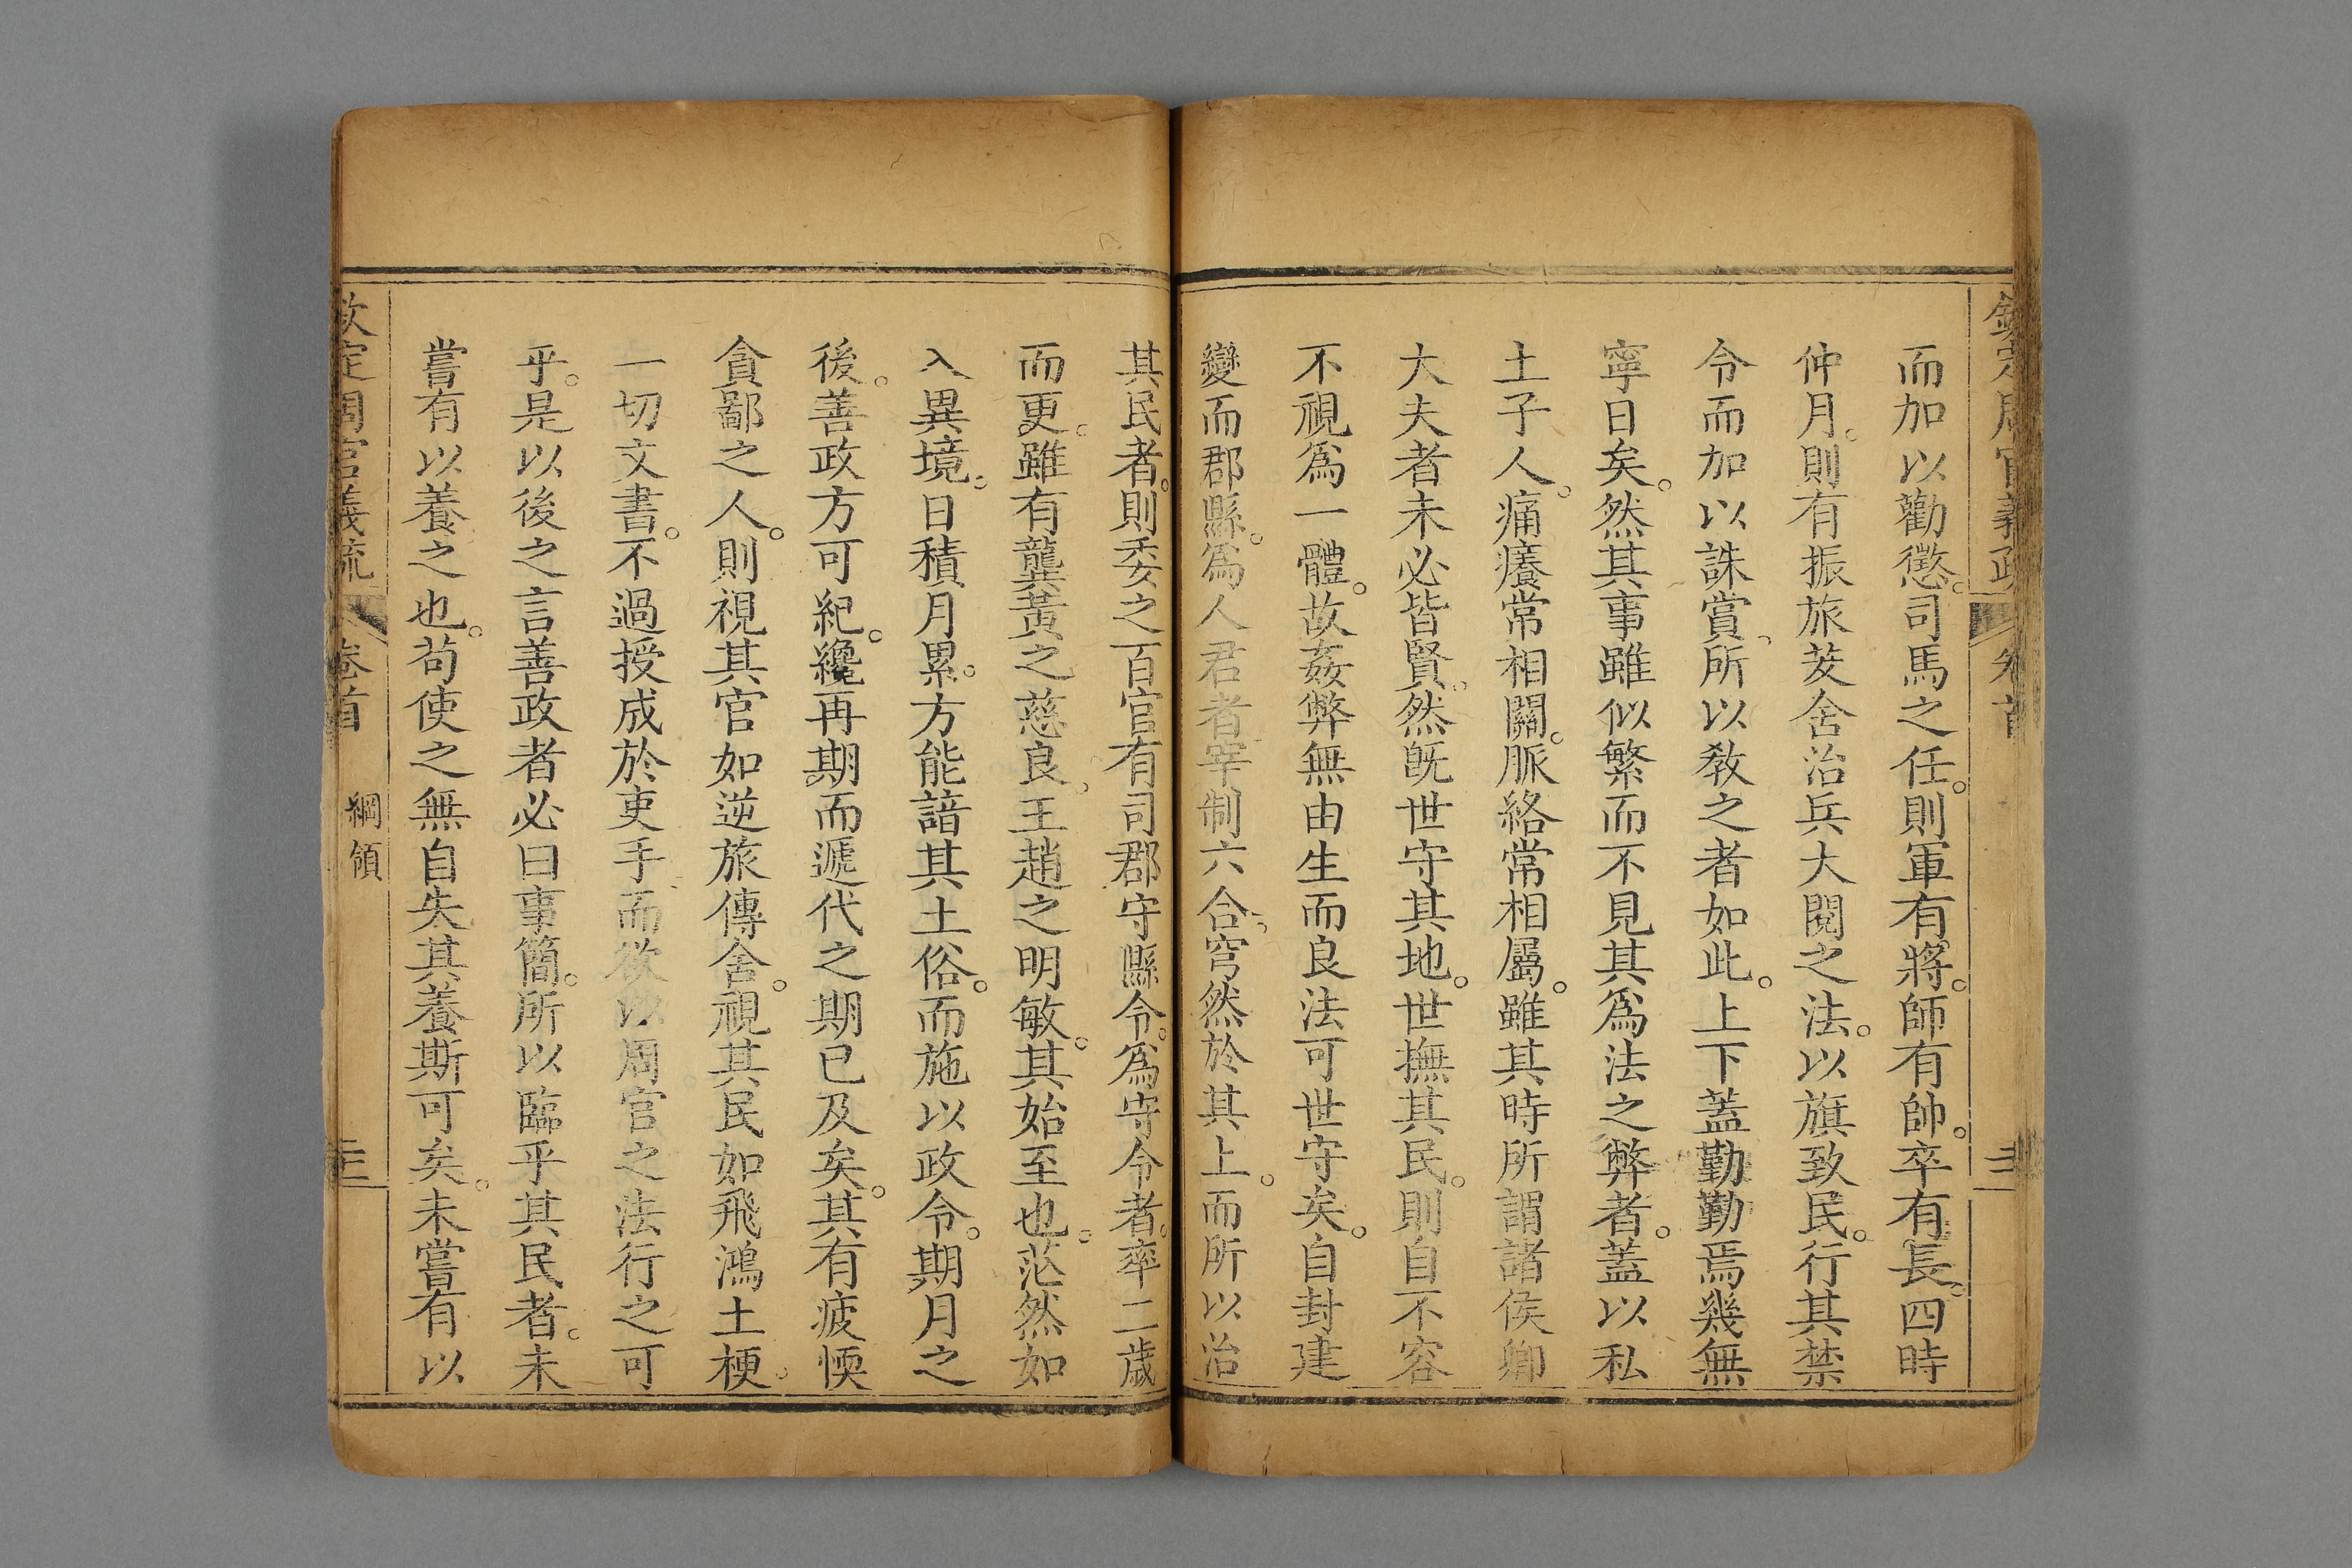 而加以勸懲。司馬之任。則軍有將。師有帥。卒有長。四時
仲月。則有振旅茇舍治兵大閱之法。以旗致民。行其禁
令而加以誅賞、所以敎之者如此。上下蓋勤勤焉幾無
寧日矣。然其事雖似繁而不見其爲法之弊者。蓋以私
土子人。痛癢常相關。脈絡常相屬。雖其時所謂諸侯卿
大夫者未必皆賢。然旣世守其地。世撫其民。則自不容
不視爲一體。故姦弊無由生而良法可世守矣。自封建
變而郡縣。爲人君者宰制六合、穹然於其上。而所以治
其民者。則委之百官有司郡守縣令。爲守令者。率二歲
而更。雖有龔黃之慈良。王趙之明敏。其始至也。茫然如
入異境。日積月累。方能諳其土俗。而施以政令。期月之
後。善政方可紀。纔再期而遞代之期已及矣。其有疲愞
貪鄙之人。則視其官如逆旅傳舍。視其民如飛鴻土梗。
一切文書。不過授成於吏手而欲以周官之法行之可
乎。是以後之言善政者必曰事簡。所以臨乎其民者。未
嘗有以養之也。苟使之無自失其養斯可矣。未嘗有以
欽定周官義疏 卷首 綱領 三